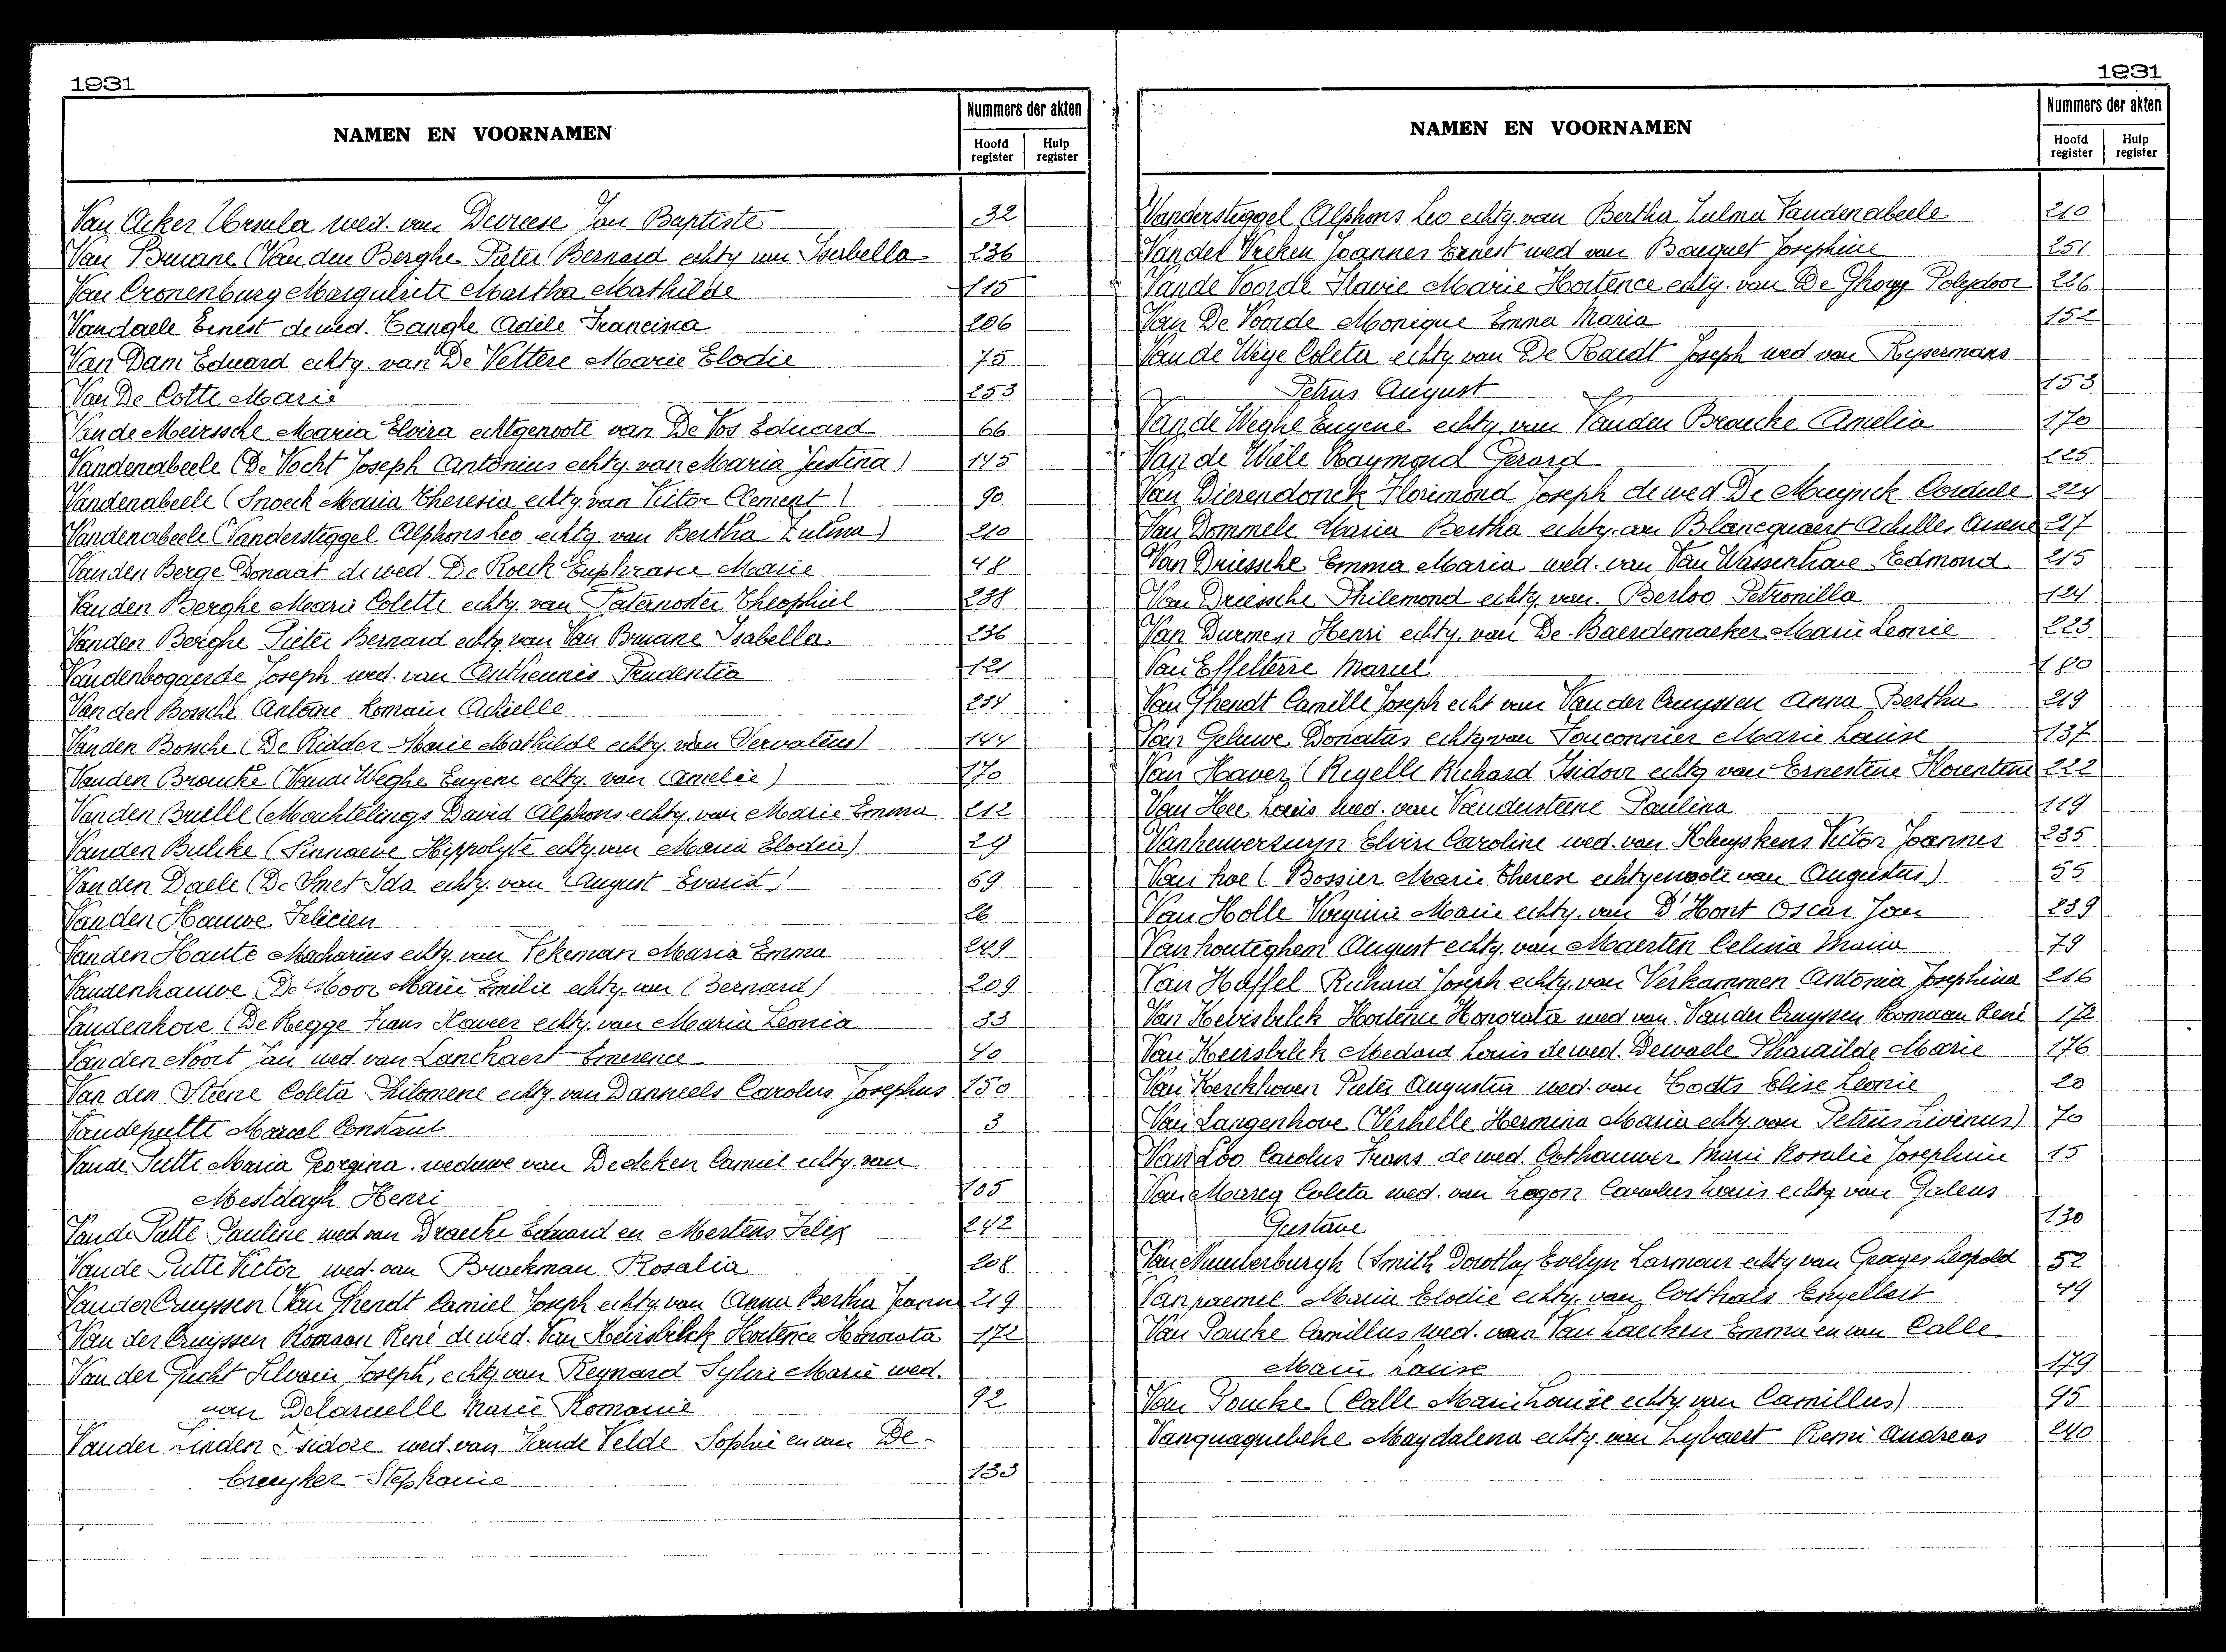 1931
NAMEN EN VOORNAMEN
Nummers der akten
Hoofd register
Hulp register
Van Acker Ursula wed. van Devreese Jan Baptiste 32
Van Bruane (Van den Berghe Pieter Bernard echtg van Isabella 236
Van Cronenburg Marguerite Martha Mathilde 115
Vandaele Ernest de wed. Tanghe Adèle Francisca 206
Van Dam Eduard echtg. van De Vettere Marie Elodie 75
Van De Cotte Marie 253
Vande Meirssche Maria Elvira echtgenoote van De Vos Eduard 66
Vandenabeele (De Vocht Joseph Antonius echtg. van Maria Justina) 145
Vandenabeele (Snoeck Maria Theresia echtg. van Victor Clement) 90
Vandenabeele (Vanderstiggel Alphons Leo echtg. van Bertha Zulma) 210
Vanden Berge Donaat de wed. De Roeck Euphrasie Marie 48
Vanden Berghe Marie Colette echtg. van Paternoster Theophiel 238
Vanden Berghe Pieter Bernard echtg van Van Bruane Isabella 236
Vandenbogaerde Joseph wed. van Antheunis Prudentia 121
Van den Bossche Antoine Romain Achielle 254
Vanden Bossche (De Ridder Marie Mathilde echtg. van Servatius) 144
Vanden Broucke (Vande Weghe Eugene echtg. van Amelie) 170
Vanden Bruelle (Machtelings David Alphons echtg. van Marie Emma 212
Vanden Bulcke (Pinnaewe Hippolyte echtg. van Maria Elodia) 29
Van den Daele (De Smet Ida echtg. van August Evarist) 69
Vanden Hauwe Felicien 26
Vanden Haute Macharius echtg. van Tekeman Maria Emma 249
Vandenhauwe De Moor Marie Emilie echtg. van (Bernard) 209
Vandenhove (De Regge Frans Xaveer echtg. van Maria Leonia 33
Vanden Noort Jan wed. van Lanckaert Emerence 40
Van den Steene Coleta Philomene echtg. van Danneels Carolus Josephus 150
Vandeputte Marcel Constant 3
Vande Putte Maria Georgina. weduwe van Dedeken Camiel echtg. van
Mestdagh Henri 105
Vande Putte Pauline wed van Draecke Eduard en Mertens Felix 242
Vande Putte Victor wed. van Brackman Rosalia 208
Vander Cruyssen (Van Ghendt Camiel Joseph echtg. van Anna Bertha Jeanne 219
Van der Cruyssen Romaan René de wed. Van Keirsbilck Hortence Honorata 172
Van der Gucht Silvain Joseph, echtg van Reynard Sylvie Marie wed.
van Delaruelle Marie Romanie 92
Vander Linden Isidore wed. van Vande Velde Sophie en van De-
Creuyker Stephanie 133
1931
NAMEN EN VOORNAMEN
Nummers der akten
Hoofd register
Hulp register
Vanderstiggel Alphons Leo echtg. van Bertha Zulma Vandenabeele 210
Van del Vreken Joannes Ernest wed van Baeguet Josephine 251
Vande Voorde Flavie Marie Hortence echtg. van De Ghouy Polydoor 226
Van De Voorde Monique Emma Maria 152
Van de Weye Coleta echtg van De Raedt Joseph wed van Rysermans
Petrus August 153
Van de Weghe Eugene echtg. van Vanden Broucke Amelia 170
Van de Wiele Raymond Gerard 225
Van Dierendonck Florimond Joseph de wed De Muynck Cordule 224
Van Dommele Maria Bertha echtg. van Blancquaert Achilles Arsene 217
Van Driessche Emma Maria wed. van Van Wassenhove Edmond 215
Van Driessche Philemond echtg. van Berloo Petronilla 124
Van Durmen Henri echtg. van De Baerdemaeker Marie Leonie 223
Van Effelterre Marcel 180
Van Ghendt Camille Joseph echt van Van der Cruyssen Anna Bertha 219
Van Geluwe Donatus echtg van Fouconnier Marie Louise 137
Van Haver (Rigelle Richard Isidoor echtg van Ernestine Florentine 222
Van Hee Louis wed. van Vandersteene Paulina 119
Vanheuverzwyn Elvire Caroline wed. van Kluyskens Victor Joannes 235
Van hoe (Bossier Marie Therese echtgenoote van Augustus) 55
Van Holle Virginie Marie echtg. van D'Hont Oscar Jan 239
Van houteghem August echtg. van Maerten Celina Maria 79
Van Huffel Richard Joseph echtg. van Verkammen Antonia Josephina 216
Van Keirsbilck Hortence Honorata wed van Van der Cruyssen Romaan René 172
Van Keirsbilck Medard Louis de wed. Dewaele Pharailde Marie 176
Van Kerckhoven Pieter Augustin wed. van Codts Elise Leonie 20
Van Langenhove (Verhelle Hermina Maria echtg. van Petrus Livinus) 70
Van Loo Carolus Frans de wed. Cothauwer Marie Rosalie Josephine 15
Van Mareg Coleta wed. van Logon Carolus Louis echtg van Galens
Gustave 130
Van Nunterburgh (Smith Dorothy Evelyn Larmour echtg van Georges Leopold 52
Van paemel Maria Elodie echtg. van Corthals Engelbert 49
Van Poucke Camillus wed. van Van Laecken Emma en van Calle
Marie Louise 179
Van Poucke (Calle Marie Louise echtg van Camillus) 95
Vanquaquebeke Magdalena echtg. van Lybaert Remi Andreas 240